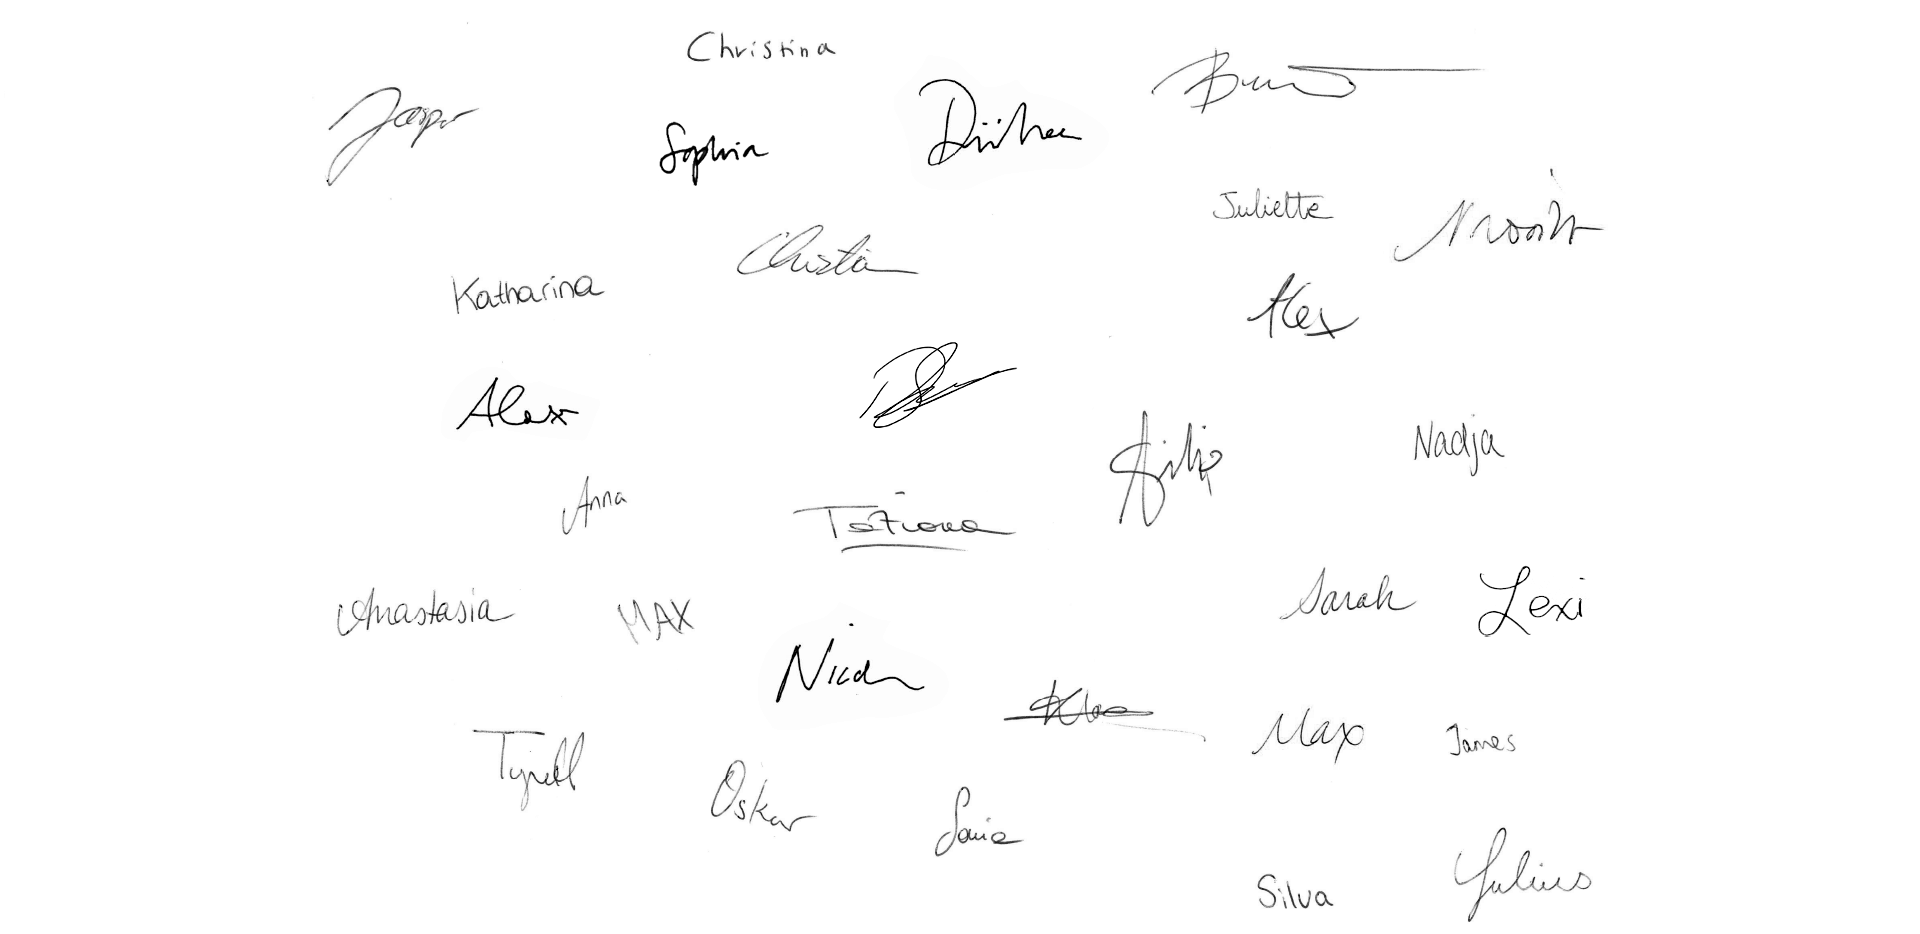 Christina
Jasper
Sophia
Juliette
Christian
Katharina
Alex
Alex
Nadja
Filip
Anna
Tatiana
Anastasia
MAX
Sarah
Lexi
Max
James
Tyrell
Oskar
Silva
Julius